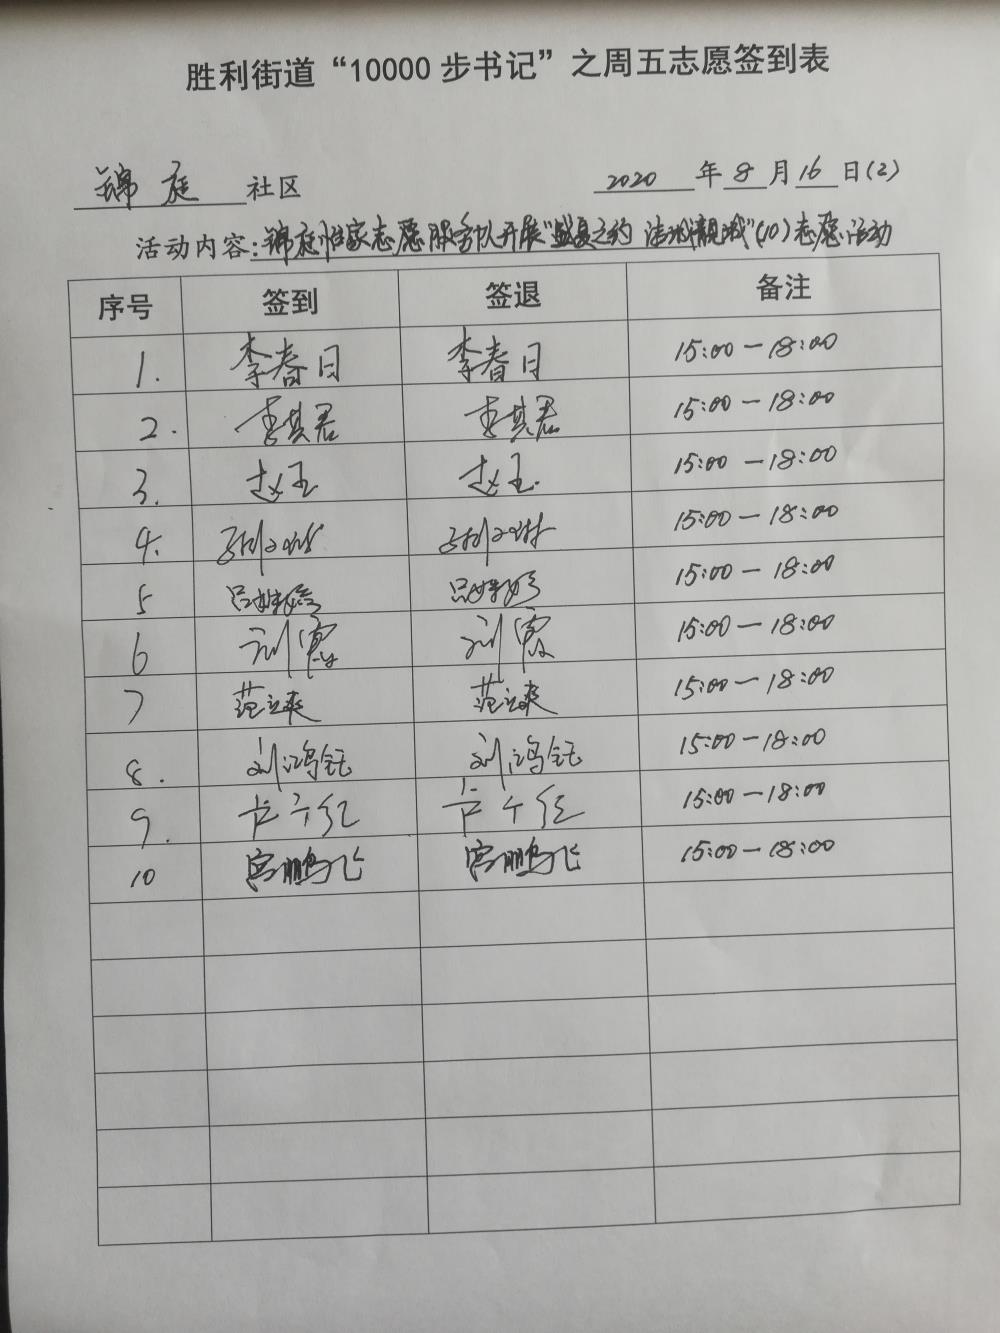 胜利街道“10000步书记”之周五志愿签到表
锦庭社区 2020年8月16日(2)
活动内容:锦庭恒家志愿服务队开展“盛夏之约 洁城靓城”(10)志愿活动
序号 签到 签退 备注
1. 李春日 李春日 15:00-18:00
2. 李其君 李其君 15:00-18:00
3. 赵玉 赵玉. 15:00-18:00
4. 15:00-18:00
5 15:00-18:00
6 刘霞 刘霞 15:00-18:00
7 范立爽 范立爽 15:00-18:00
8. 刘鸿钰 刘鸿钰 15:00-18:00
9. 15:00-18:00
10 宫鹏飞 宫鹏飞 15:00-18:00